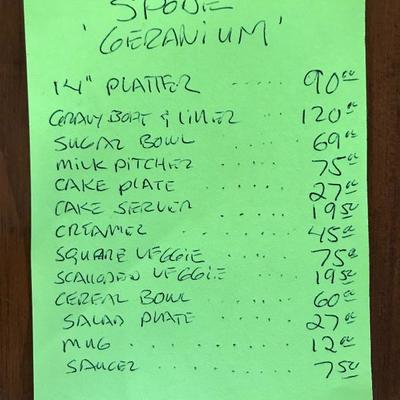 SPODE
'GERANIUM'
14" PLATTER ..... 90.00
GRAVY BOAT & LINER ... 120.00
SUGAR BOWL ..... 69.00
MILK PITCHER ..... 75.00
CAKE PLATE ..... 27.00
CAKE SERVER ..... 19.50
CREAMER ..... 45.00
SQUARE VEGGIE ..... 75.00
SCALLOPED VEGGIE ..... 19.50
CEREAL BOWL ..... 60.00
SALAD PLATE ..... 27.00
MUG ......... 12.00
SAUCER ....... 7.50